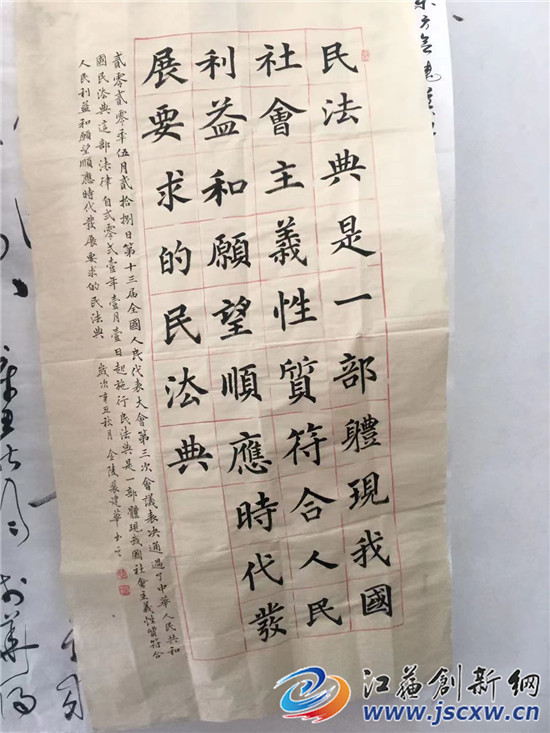 民法典是一部體現我國
社會主義性質符合人民
利益和願望順應時代發
展要求的民法典
貳零貳零年伍月貳拾捌日第十三屆全國人民代表大會第三次會議表决通過了中華人民共和
國民法典這部法律自弍零弍壹年壹月壹日起施行民法典是一部體現我國社會主義性質符合
人民利益和願望順應時代發展要求的民法典 歲次辛丑秋月 金陵 建華
江蘇創新網
www.jscxw.cn